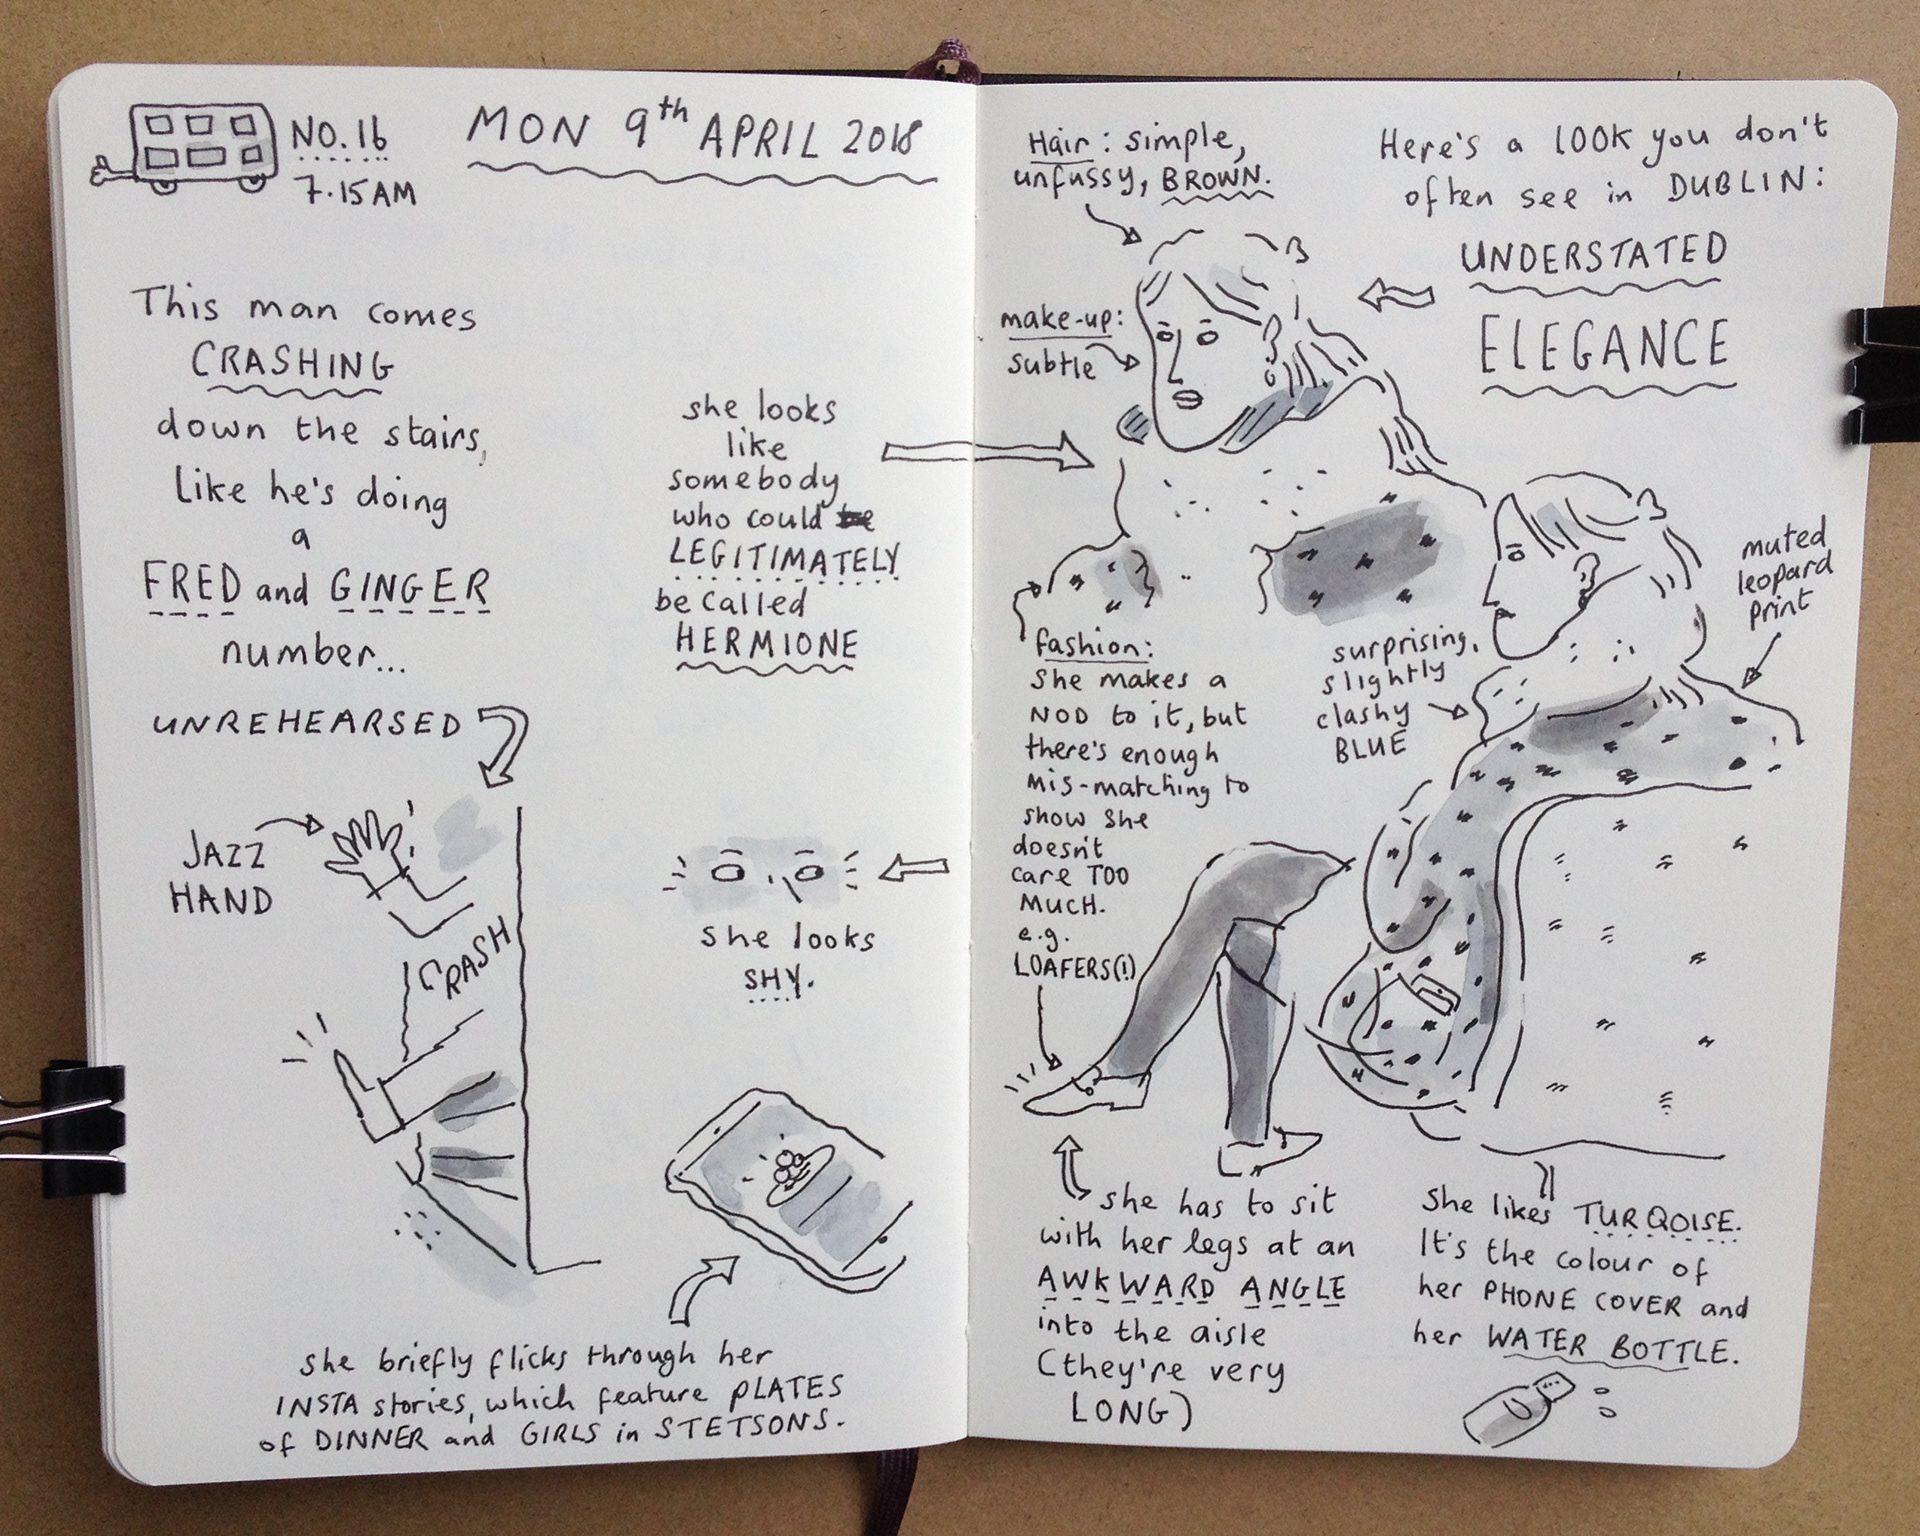 NO. 16
7.15AM
MON 9th APRIL 2018
This man comes
CRASHING
down the stairs,
like he's doing
a
FRED and GINGER
number...
UNREHEARSED
JAZZ
HAND
CRASH
she looks
like
somebody
who could be
LEGITIMATELY
be called
HERMIONE
she looks
SHY.
she briefly flicks through her
INSTA stories, which feature PLATES
of DINNER and GIRLS in STETSONS.
Hair: simple,
unfussy, BROWN.
Here's a LOOK you don't
often see in DUBLIN:
UNDERSTATED
ELEGANCE
make-up:
subtle
muted
leopard
print
fashion:
She makes a
NOD to it, but
there's enough
mis-matching to
show she
doesn't
care TOO
MUCH.
e.g.
LOAFERS(!)
surprising,
slightly
clashy
BLUE
she has to sit
with her legs at an
AWKWARD ANGLE
into the aisle
(they're very
LONG)
She likes TURQOISE.
It's the colour of
her PHONE COVER and
her WATER BOTTLE.